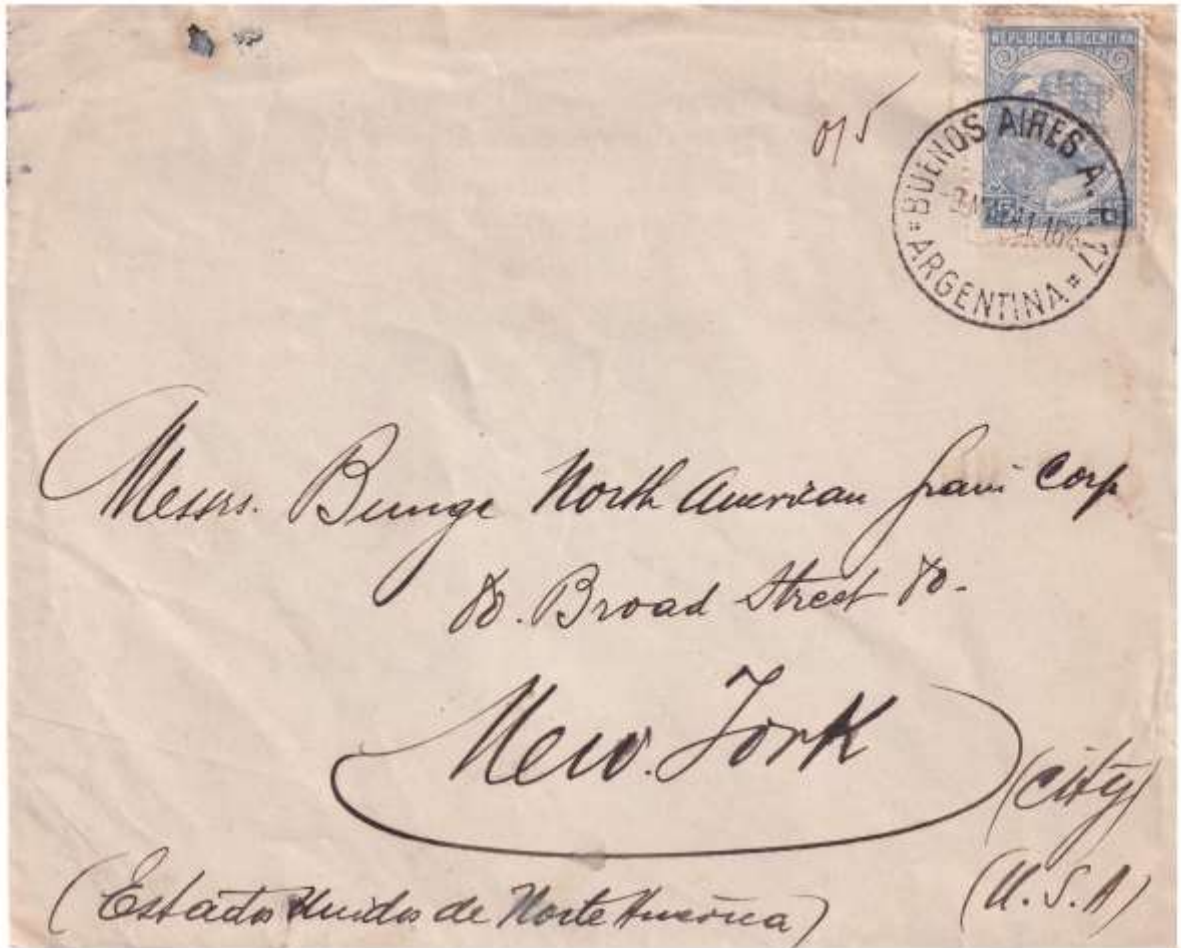 REPUBLICA ARGENTINA
0/5
BUENOS AIRES A. P. 17
ARGENTINA
Messrs. Bunge North American Grain Corp
80. Broad Street 80.
New. York
(City)
(U.S.A)
(Estados Unidos de Norte America)